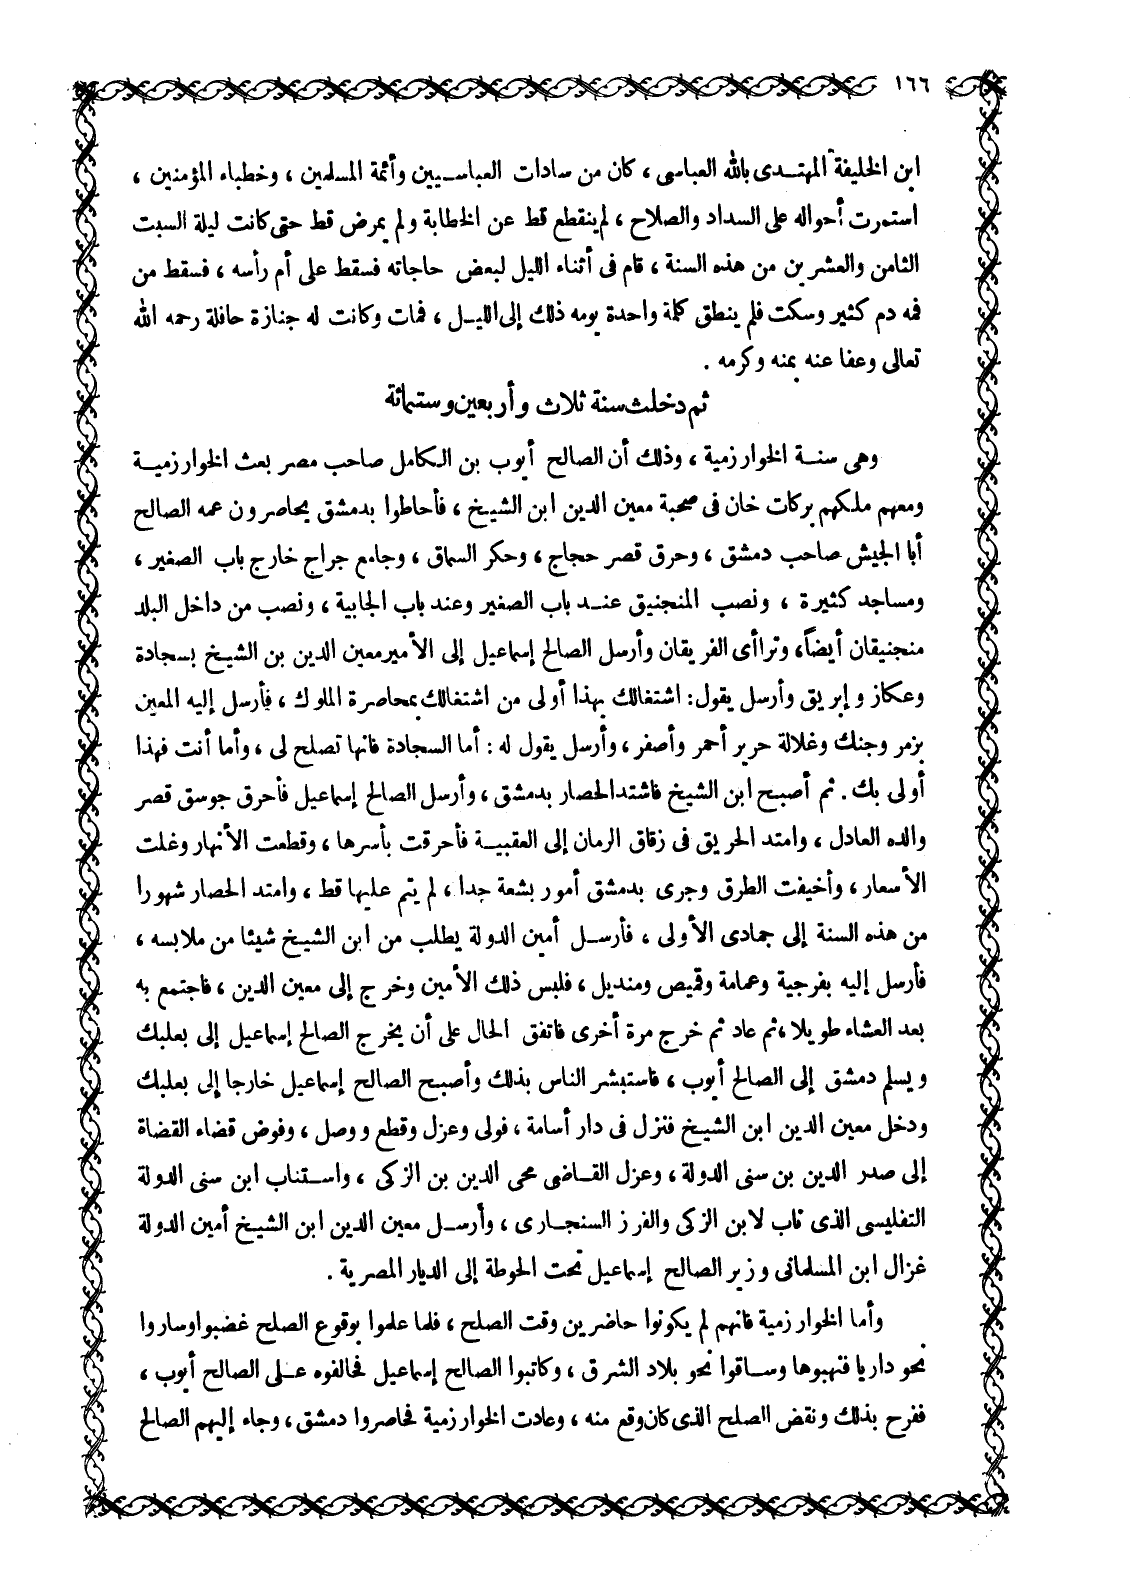 ١٦٦
ابن الخليفة المهتدى بالله العباسى ، كان من سادات العباسيين وأئمة المسلمين ، وخطباء المؤمنين ،
استمرت أحواله على السداد والصلاح ، لم ينقطع قط عن الخطابة ولم يمرض قط حتى كانت ليلة السبت
الثامن والعشرين من هذه السنة ، قام فى أثناء الليل لبعض حاجاته فسقط على أم رأسه ، فسقط من
فمه دم كثير وسكت فلم ينطق كلمة واحدة يومه ذلك إلى الليل ، فمات وكانت له جنازة حافلة رحمه الله
تعالى وعفا عنه بمنه وكرمه .
ثم دخلت سنة ثلاث وأربعين وستمائة
وهى سنة الخوارزمية ، وذلك أن الصالح أيوب بن الكامل صاحب مصر بعث الخوارزمية
ومعهم ملكهم بركات خان فى صحبة معين الدين ابن الشيخ ، فأحاطوا بدمشق يحاصرون عمه الصالح
أبا الجيش صاحب دمشق ، وحرق قصر حجاج ، وحكر السماق ، وجامع جراح خارج باب الصغير ،
ومساجد كثيرة ، ونصب المنجنيق عند باب الصغير وعند باب الجابية ، ونصب من داخل البلد
منجنيقان أيضاً، وتراأى الفريقان وأرسل الصالح إسماعيل إلى الأمير معين الدين بن الشيخ بسجادة
وعكاز وإبريق وأرسل يقول : اشتغالك بهذا أولى من اشتغالك بمحاصرة الملوك ، فأرسل إليه المعين
بزمر وجنك وغلالة حرير أحمر وأصفر ، وأرسل يقول له : أما السجادة فانها تصلح لى ، وأما أنت فهذا
أولى بك . ثم أصبح ابن الشيخ فاشتد الحصار بدمشق ، وأرسل الصالح إسماعيل فأحرق جوسق قصر
والده العادل ، وامتد الحريق فى زقاق الرمان إلى العقيبة فأحرقت بأسرها ، وقطعت الأنهار وغلت
الأسعار ، وأخيفت الطرق وجرى بدمشق أمور بشعة جدا ، لم يتم عليها قط ، وامتد الحصار شهورا
من هذه السنة إلى جمادى الأولى ، فأرسل أمين الدولة يطلب من ابن الشيخ شيئا من ملابسه ،
فأرسل إليه بفرجية وعمامة وقميص ومنديل ، فلبس ذلك الأمين وخرج إلى معين الدين ، فاجتمع به
بعد العشاء طويلا ، ثم عاد ثم خرج مرة أخرى فاتفق الحال على أن يخرج الصالح إسماعيل إلى بعلبك
ويسلم دمشق إلى الصالح أيوب ، فاستبشر الناس بذلك وأصبح الصالح إسماعيل خارجا إلى بعلبك
ودخل معين الدين ابن الشيخ فنزل فى دار أسامة ، فولى وعزل وقطع ووصل ، وفوض قضاء القضاة
إلى صدر الدين بن سنى الدولة ، وعزل القاضى محى الدين بن الزكى ، واستناب ابن سنى الدولة
التفليسى الذى ناب لابن الزكى والفرز السنجارى ، وأرسل معين الدين ابن الشيخ أمين الدولة
غزال ابن المسلمانى وزير الصالح إسماعيل تحت الحوطة إلى الديار المصرية .
وأما الخوارزمية فانهم لم يكونوا حاضرين وقت الصلح ، فلما علموا بوقوع الصلح غضبوا وساروا
نحو داريا فنهبوها وساقوا نحو بلاد الشرق ، وكاتبوا الصالح إسماعيل فحالفوه على الصالح أيوب ،
ففرح بذلك ونقض الصلح الذى كان وقع منه ، وعادت الخوارزمية فحاصروا دمشق ، وجاء إليهم الصالح